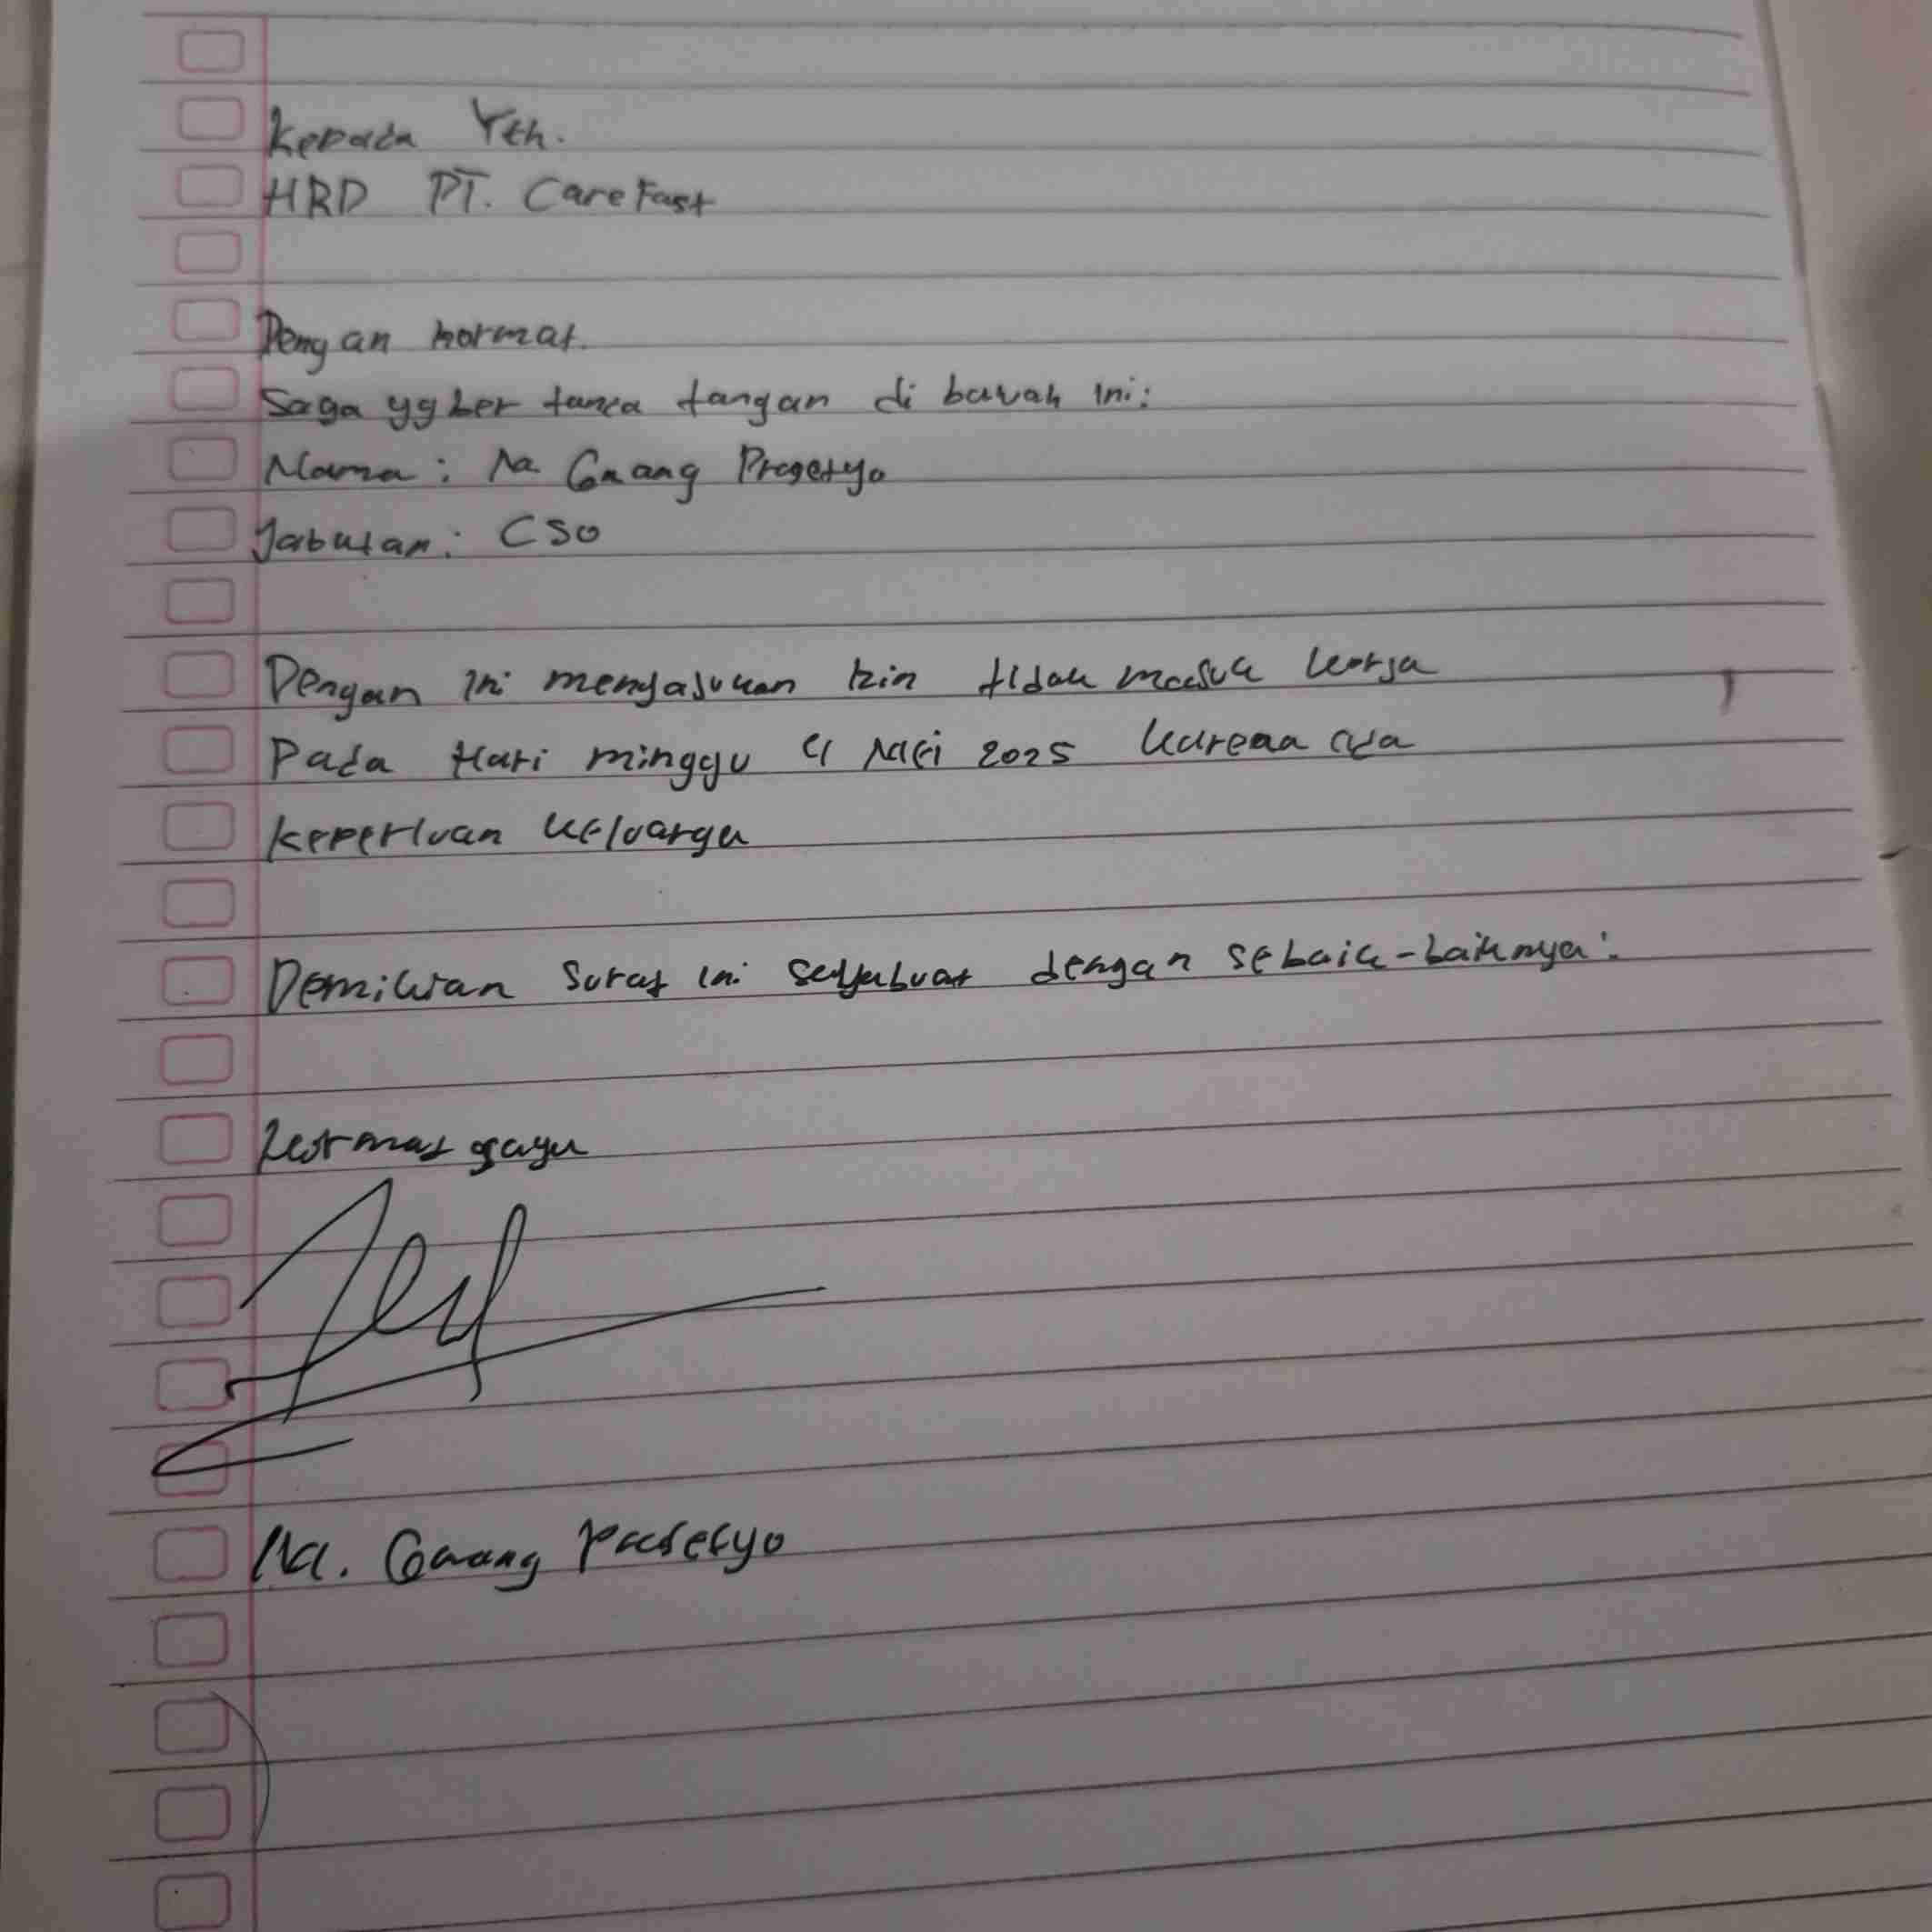 Kepada Yth.
HRD PT. CareFast
Dengan hormat.
Saya yg ber tanda tangan di bawah ini:
Nama: Ganang Prasetyo
Jabatan: CSO
Dengan ini mengajukan Izin tidak masuk kerja
Pada Hari minggu 4 Mei 2025 karena ada
keperluan keluarga
Demikian Surat ini dengan sebaik-baiknya.
Hormat saya
Ganang Prasetyo